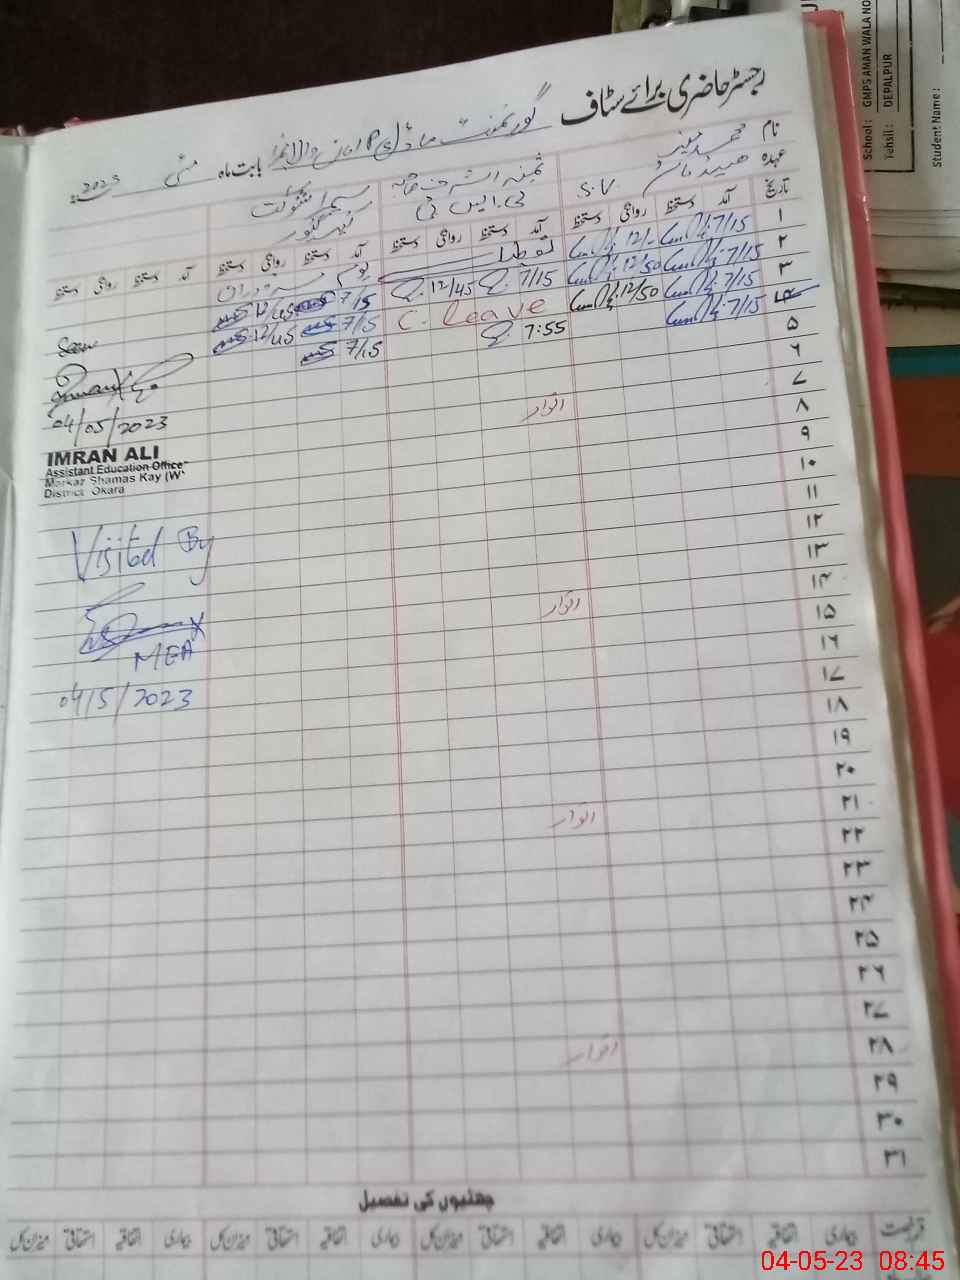 School: GMPS AMAN WALA NO
Tehsil: DEPALPUR
Student Name:
رجسٹر حاضری برائے سٹاف
گورنمنٹ ماڈل پرا امان والا بابت ماہ مئی 2023ء
نام محمد منیر ثمینہ اشرف
عہدہ ہیڈ ماسٹر S.V پی.ایس.ٹی
تاریخ آمد دستخط روانگی دستخط آمد دستخط روانگی دستخط آمد دستخط روانگی دستخط آمد دستخط روانگی دستخط
۱ 7/15 12/-
۲ 7/15 12/50 7/15 12/45 7/15 12/45
۳ 7/15 12/50 C. Leave 7/15 12/45
۴ 7/15 7:55 7/15
Seen
04/05/2023
IMRAN ALI
Assistant Education Office
Markaz Shamas Kay (W
District Okara
۵
۶
۷ اتوار
۸
۹
۱۰
۱۱
۱۲
۱۳
۱۴ اتوار
۱۵
۱۶
۱۷
۱۸
۱۹
۲۰
۲۱ اتوار
۲۲
۲۳
۲۴
۲۵
۲۶
۲۷
۲۸ اتوار
۲۹
۳۰
۳۱
Visited By
MEA
04/5/2023
چھٹیوں کی تفصیل
قسم رخصت بیماری اتفاقیہ استحقاقی میزان کل بیماری اتفاقیہ استحقاقی میزان کل بیماری اتفاقیہ استحقاقی میزان کل بیماری اتفاقیہ استحقاقی میزان کل
04-05-23 08:45